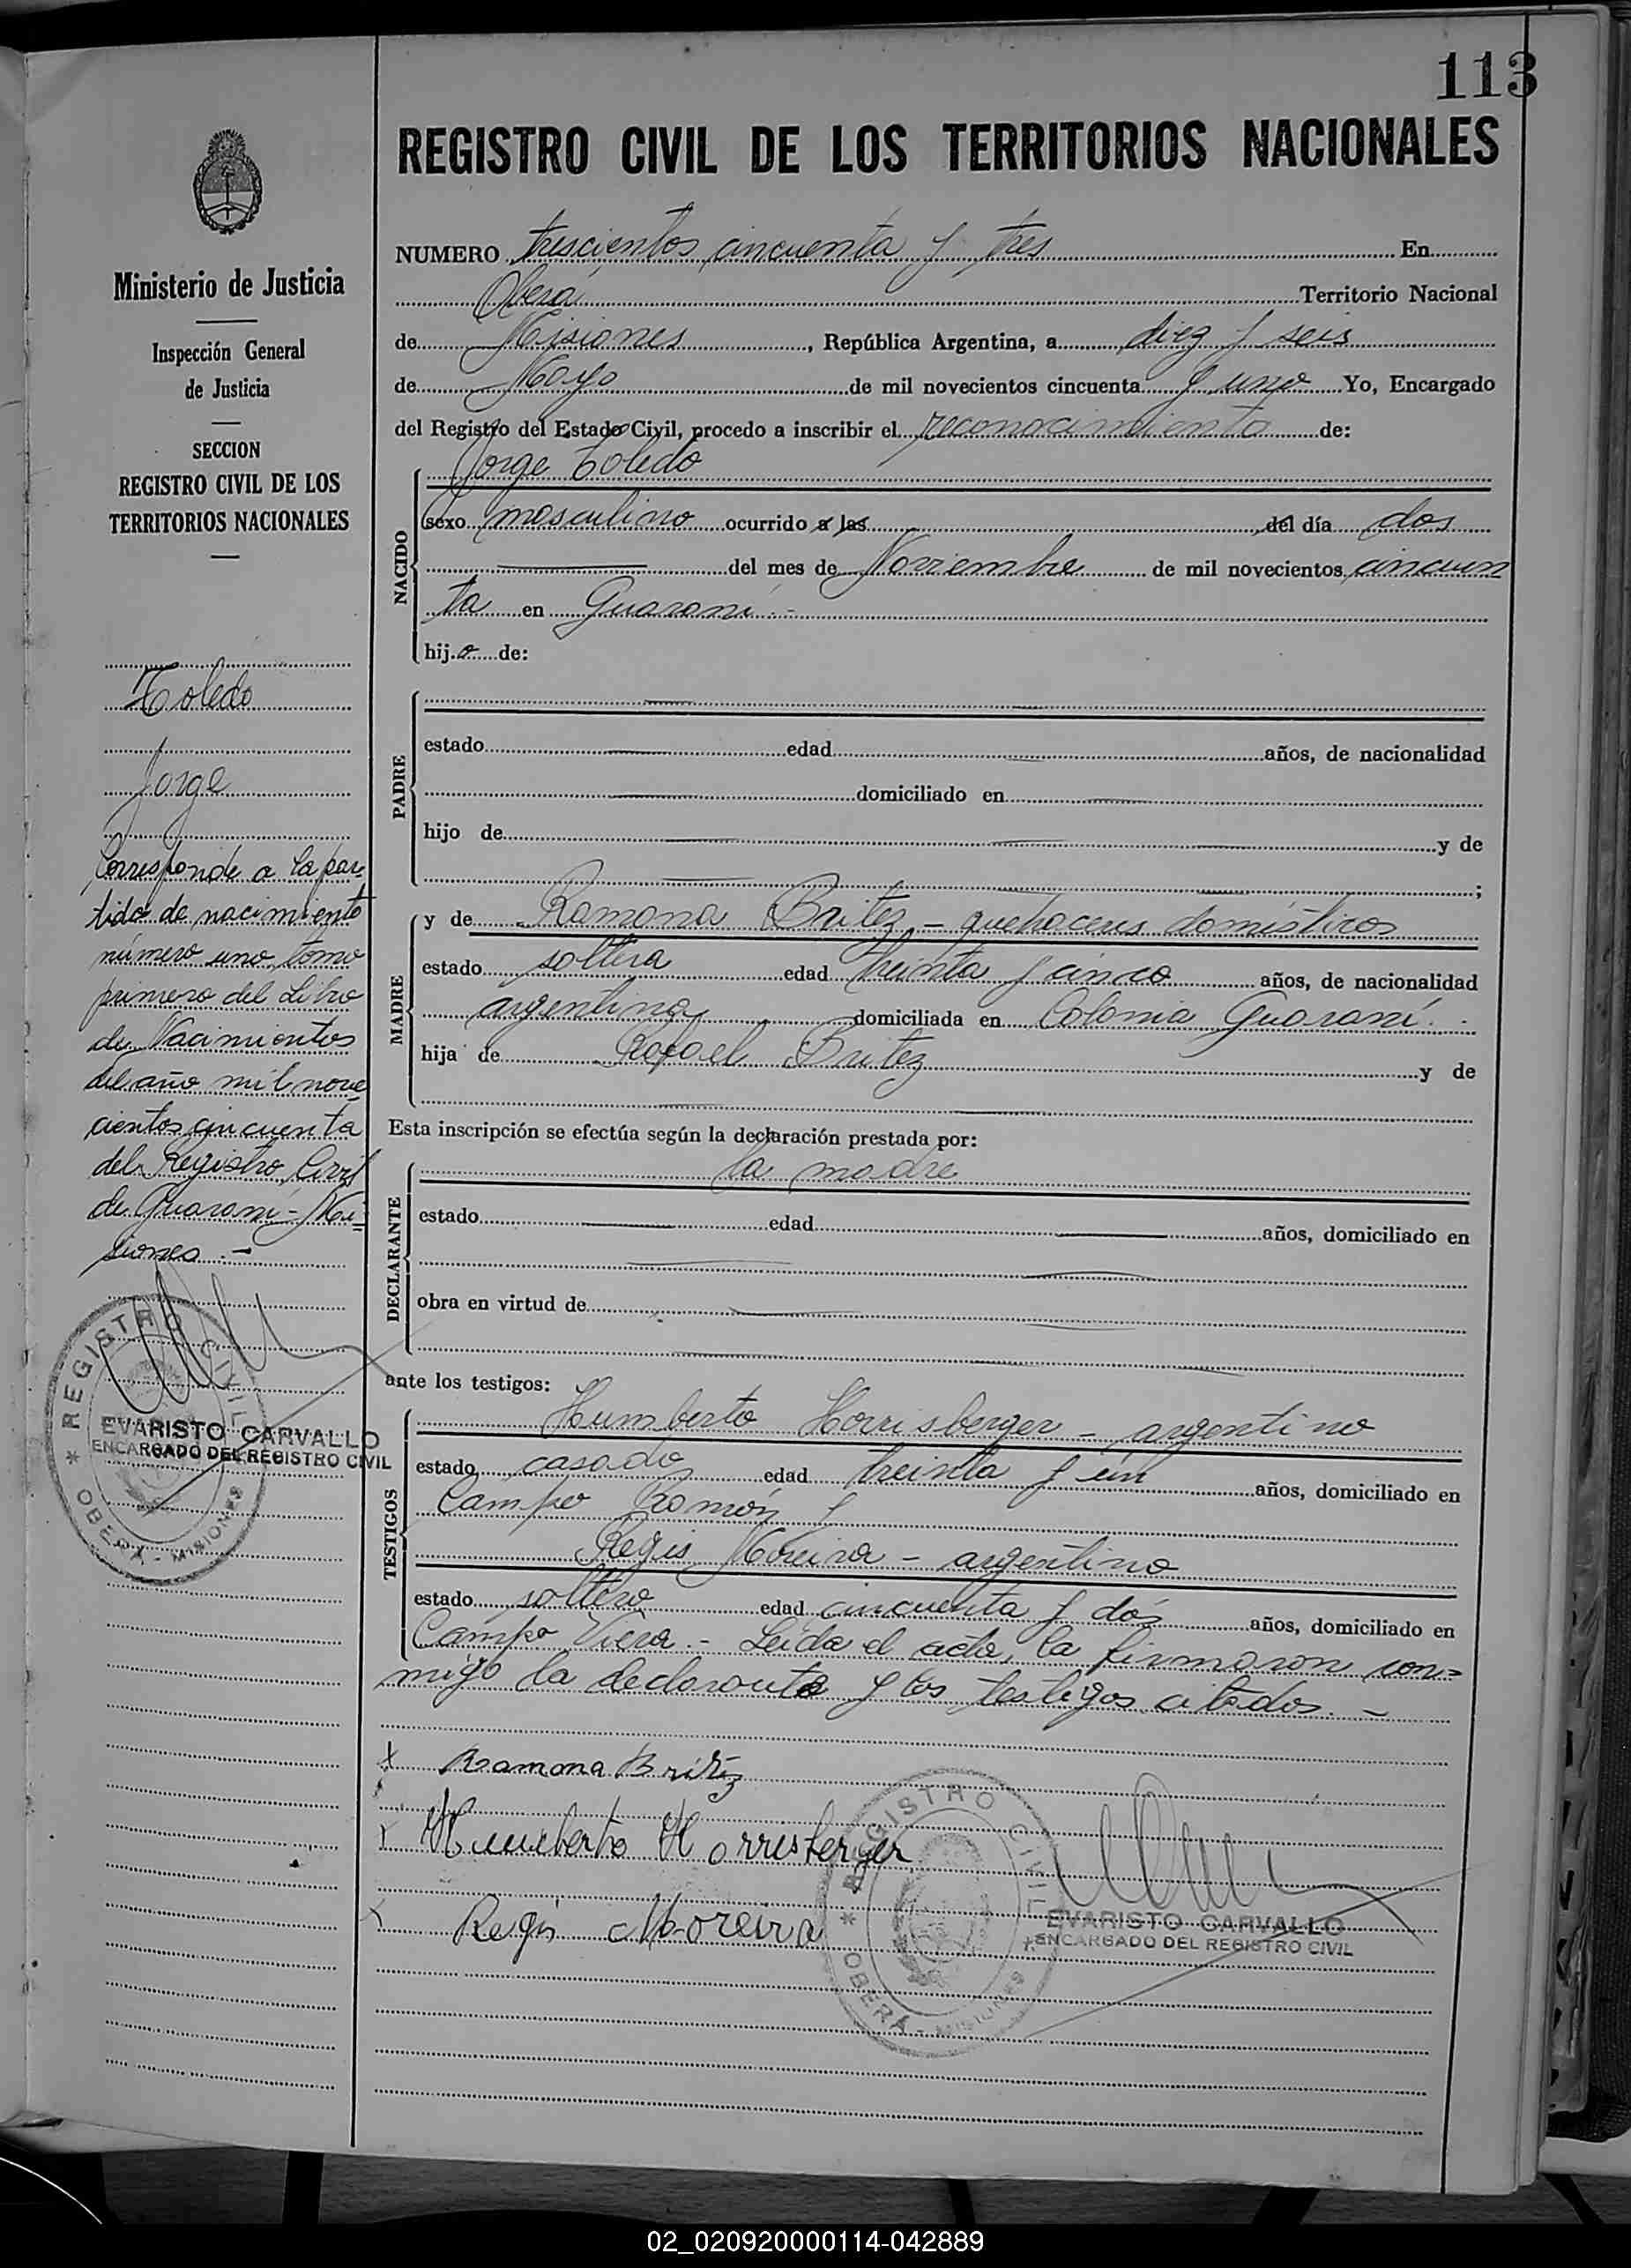 113
REGISTRO CIVIL DE LOS TERRITORIOS NACIONALES
Ministerio de Justicia
Inspección General
de Justicia
SECCION
REGISTRO CIVIL DE LOS
TERRITORIOS NACIONALES
Toledo
Jorge
Corresponde a la par-
tida de nacimiento
número uno, tomo
primero del Libro
de Nacimientos
del año mil nove
cientos cincuenta
del Registro Civil
de Guaraní - Mi=
siones.-
REGISTRO CIVIL
EVARISTO CARVALLO
ENCARGADO DEL REGISTRO CIVIL
* OBERÁ - MISIONES
NUMERO trescientos cincuenta y tres En
Oberá Territorio Nacional
de Misiones, República Argentina, a diez y seis
de Mayo de mil novecientos cincuenta y uno Yo, Encargado
del Registro del Estado Civil, procedo a inscribir el reconocimiento de:
Jorge Toledo
NACIDO
sexo masculino ocurrido a las del día dos
del mes de Noviembre de mil novecientos cincuen
ta en Guaraní.-
hijo de:
PADRE
estado edad años, de nacionalidad
domiciliado en
hijo de y de
;
MADRE
y de Ramona Britez - quehaceres domésticos
estado soltera edad treinta y cinco años, de nacionalidad
argentina domiciliada en Colonia Guaraní.-
hija de Rafael Britez y de
Esta inscripción se efectúa según la declaración prestada por:
DECLARANTE
la madre
estado edad años, domiciliado en
obra en virtud de
ante los testigos:
TESTIGOS
Humberto Horrisberger - argentino
estado casado edad treinta y un años, domiciliado en
Campo Ramón y
Regis Moreira - argentino
estado soltero edad cincuenta y dos años, domiciliado en
Campo Viera.- Leída el acta, la firmaron con=
migo la declarante y los testigos citados.-
x Ramona Britez
x Humberto Horrisberger
x Regis Moreira
REGISTRO CIVIL
* OBERÁ - MISIONES
EVARISTO CARVALLO
ENCARGADO DEL REGISTRO CIVIL
02_020920000114-042889